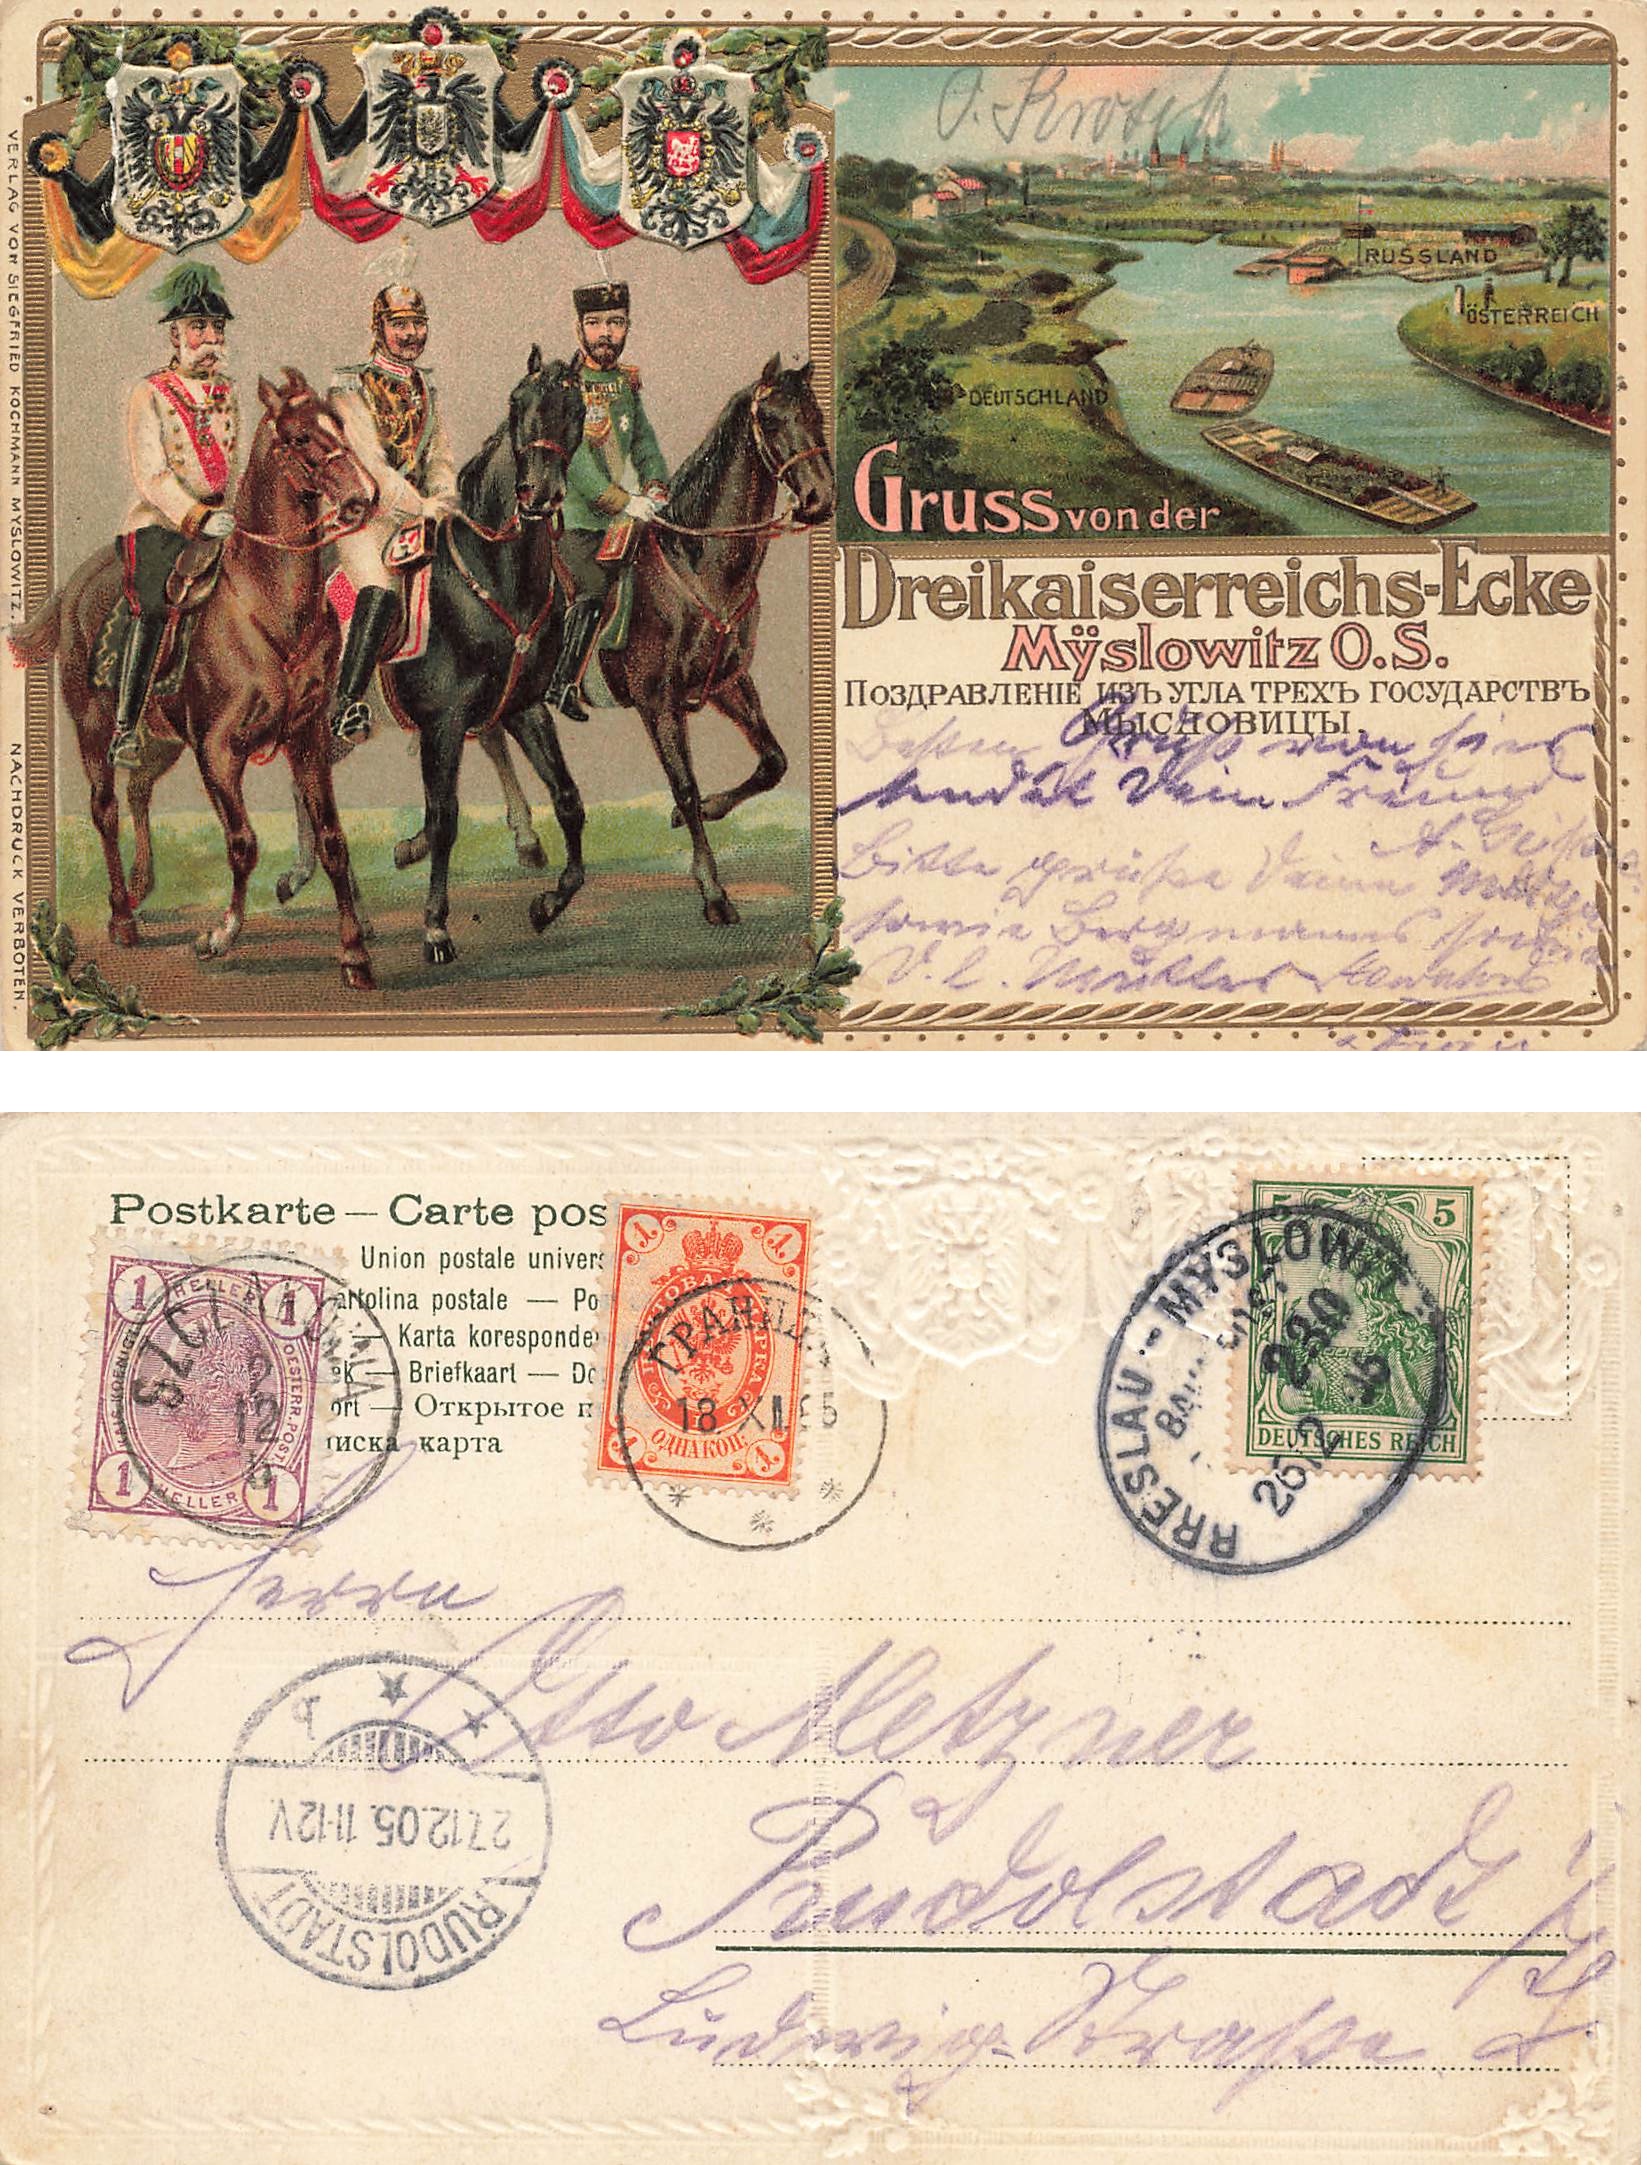 VERLAG VON SIEGFRIED KOCHMANN MYSLOWITZ.
NACHDRUCK VERBOTEN.
O. Krosch
RUSSLAND
ÖSTERREICH
DEUTSCHLAND
Gruss von der
Dreikaiserreichs-Ecke
Mÿslowitz O.S.
Поздравленіе изъ угла трехъ государствъ
Мысловицы.
Besten Gruß von hier
sendet Dein Freund
A.
Bitte grüße Deine
sowie Bergmanns sowie
Postkarte — Carte pos
Union postale univers
artolina postale — Po
— Karta koresponde
ek — Briefkaart — Do
ort — Открытое п
писка карта
1 HELLER 1
KAIS. KOENIGL. OESTERR. POST
1 HELLER 1
SZCZAKOWA
12
5
1 1
ПОЧТОВАЯ МАРКА
ОДНА КОП.
1 1
ГРАНИЦ
18 XII 05
5 5
DEUTSCHES REICH
BRESLAU - MYSLOWITZ
BAHNPOST
230
26 12 05
Herrn
Otto Metzner
Rudolstadt i/Th
Ludwig-Straße
RUDOLSTADT
27.12.05. 11-12V.
b